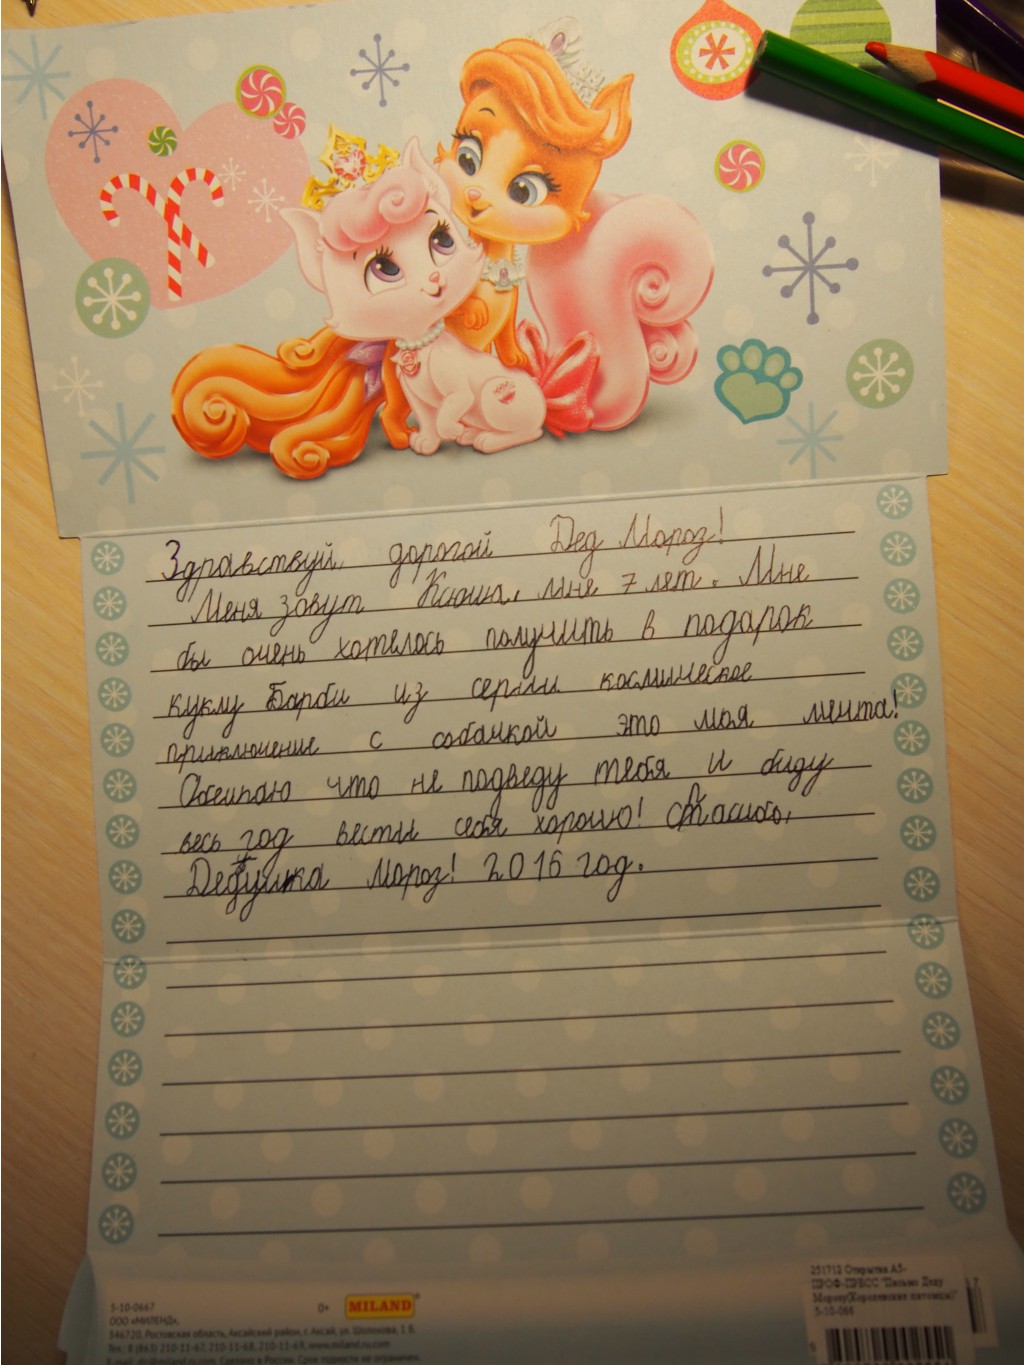 Здравствуй, дорогой Дед Мороз!
Меня зовут Ксюша, мне 7 лет. Мне
бы очень хотелось получить в подарок
куклу Барби из серии космическое
приключение с собачкой это моя мечта!
Обещаю что не подведу тебя и буду
весь год вести себя хорошо! Спасибо,
Дедушка Мороз! 2016 год.
5-10-0667
ООО «МИЛЕНД»,
346720, Ростовская область, Аксайский район, г. Аксай, ул. Шолохова, 1 Б.
Тел.: 8 (863) 210-11-67, 210-11-68, 210-11-69, www.miland.ru
Сделано в России. Срок годности не ограничен.
0+
MILAND
251712 Открытка А5-
ПРОФ-ПРЕСС "Письмо Деду
Морозу(Королевские питомцы)"
5-10-066